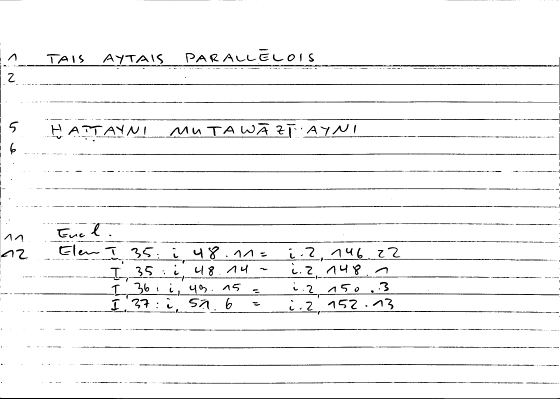 1 TAIS AYTAIS PARALLĒLOIS
2
5 ḤAṬṬAYNI MUTAWĀZĪ AYNI
6
11 Eucl.
12 Elem I, 35 : i, 48.11 = i.2, 146.22
I, 35 : i, 48.14 = i.2, 148.1
I, 36 : i, 49.15 = i.2, 150.3
I, 37 : i, 51.6 = i.2, 152.13